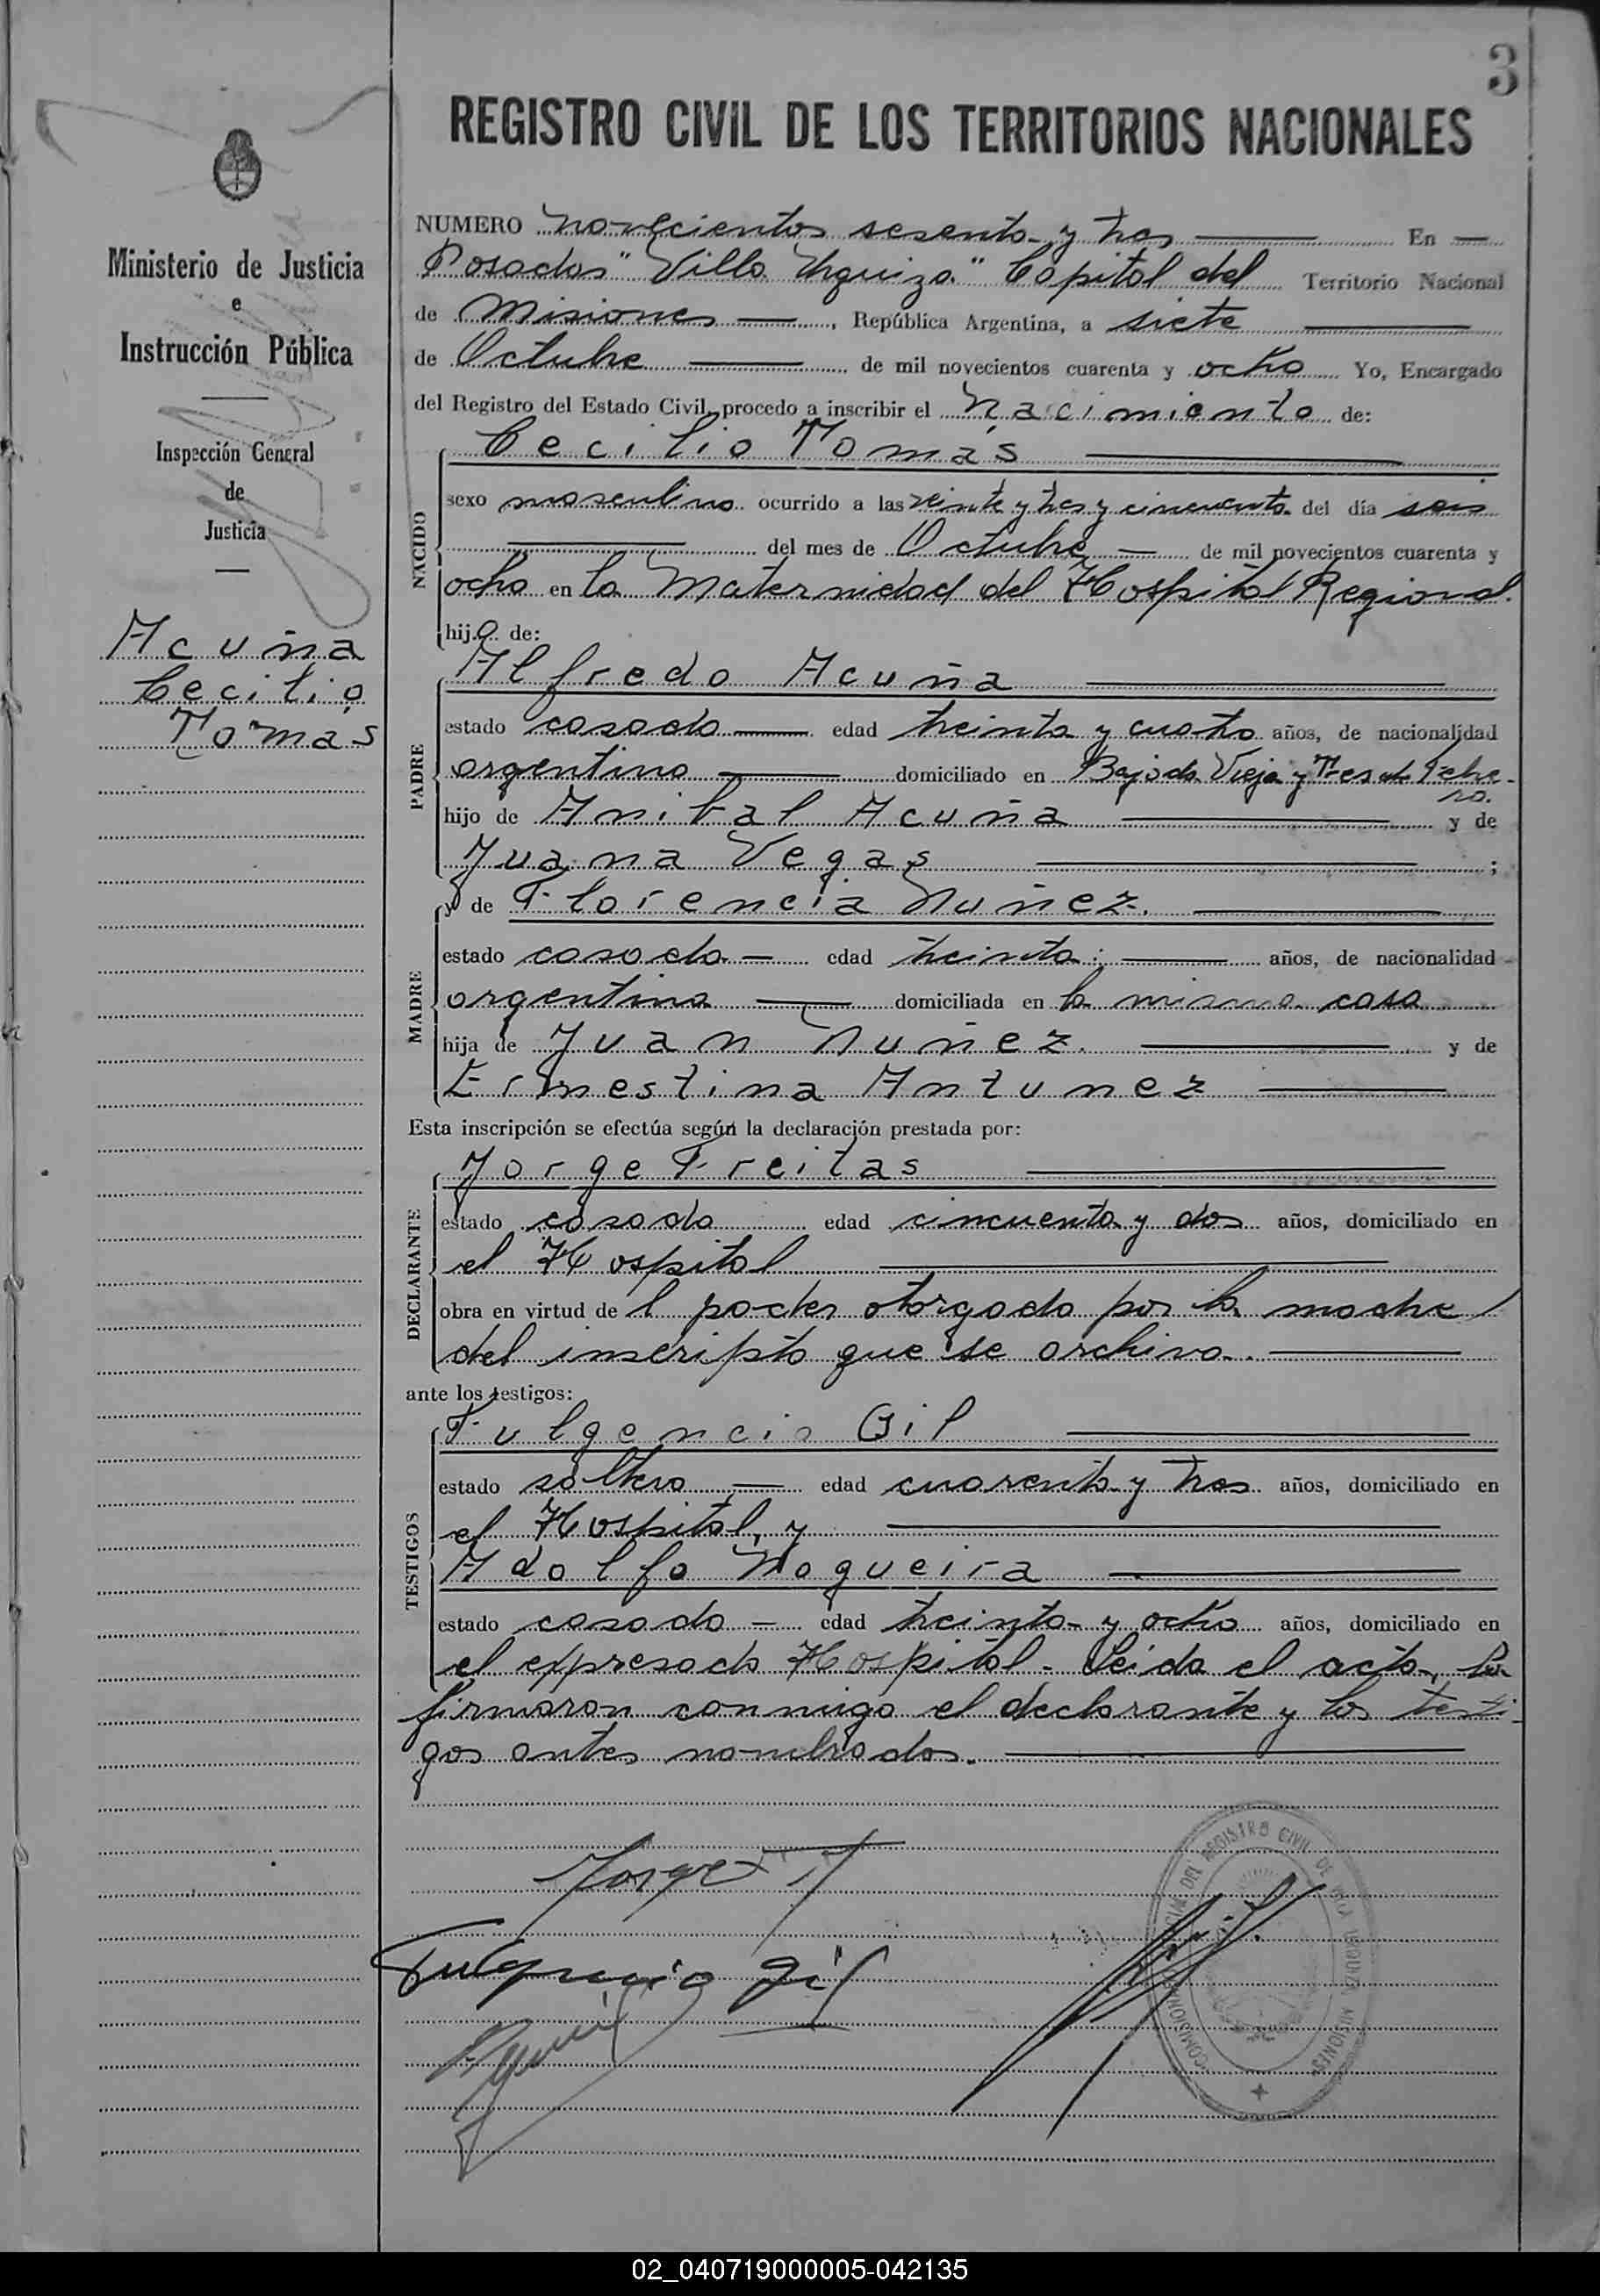 3
REGISTRO CIVIL DE LOS TERRITORIOS NACIONALES
Ministerio de Justicia
e
Instrucción Pública
Inspección General
de
Justicia
Acuña
Cecilio
Tomás
NUMERO novecientos sesenta y tres En
Posadas "Villa Urquiza" Capital del Territorio Nacional
de Misiones, República Argentina, a siete
de Octubre de mil novecientos cuarenta y ocho Yo, Encargado
del Registro del Estado Civil, procedo a inscribir el Nacimiento de:
Cecilio Tomás
NACIDO
sexo masculino ocurrido a las veinte y tres y cincuenta del día seis
del mes de Octubre de mil novecientos cuarenta y
ocho en la Maternidad del Hospital Regional.
hijo de:
Alfredo Acuña
PADRE
estado casado edad treinta y cuatro años, de nacionalidad
argentino domiciliado en Bajada Vieja y Tres de Febre-
ro.
hijo de Anibal Acuña y de
Juana Vegas ;
y de Florencia Nuñez.
MADRE
estado casada edad treinta años, de nacionalidad
argentina domiciliada en la misma casa
hija de Juan Nuñez. y de
Ernestina Antunez
Esta inscripción se efectúa según la declaración prestada por:
Jorge Freitas
DECLARANTE
estado casado edad cincuenta y dos años, domiciliado en
el Hospital
obra en virtud de l poder otorgado por la madre
del inscripto que se archiva.
ante los testigos:
Fulgencio Gil
TESTIGOS
estado soltero edad cuarenta y tres años, domiciliado en
el Hospital, y
Adolfo Nogueira
estado casado edad treinta y ocho años, domiciliado en
el expresado Hospital. Leida el acta, la
firmaron conmigo el declarante y los testi-
gos antes nombrados.
Jorge
Fulgencio Gil
DEL REGISTRO CIVIL DE VILLA URQUIZA MISIONES
02_040719000005-042135